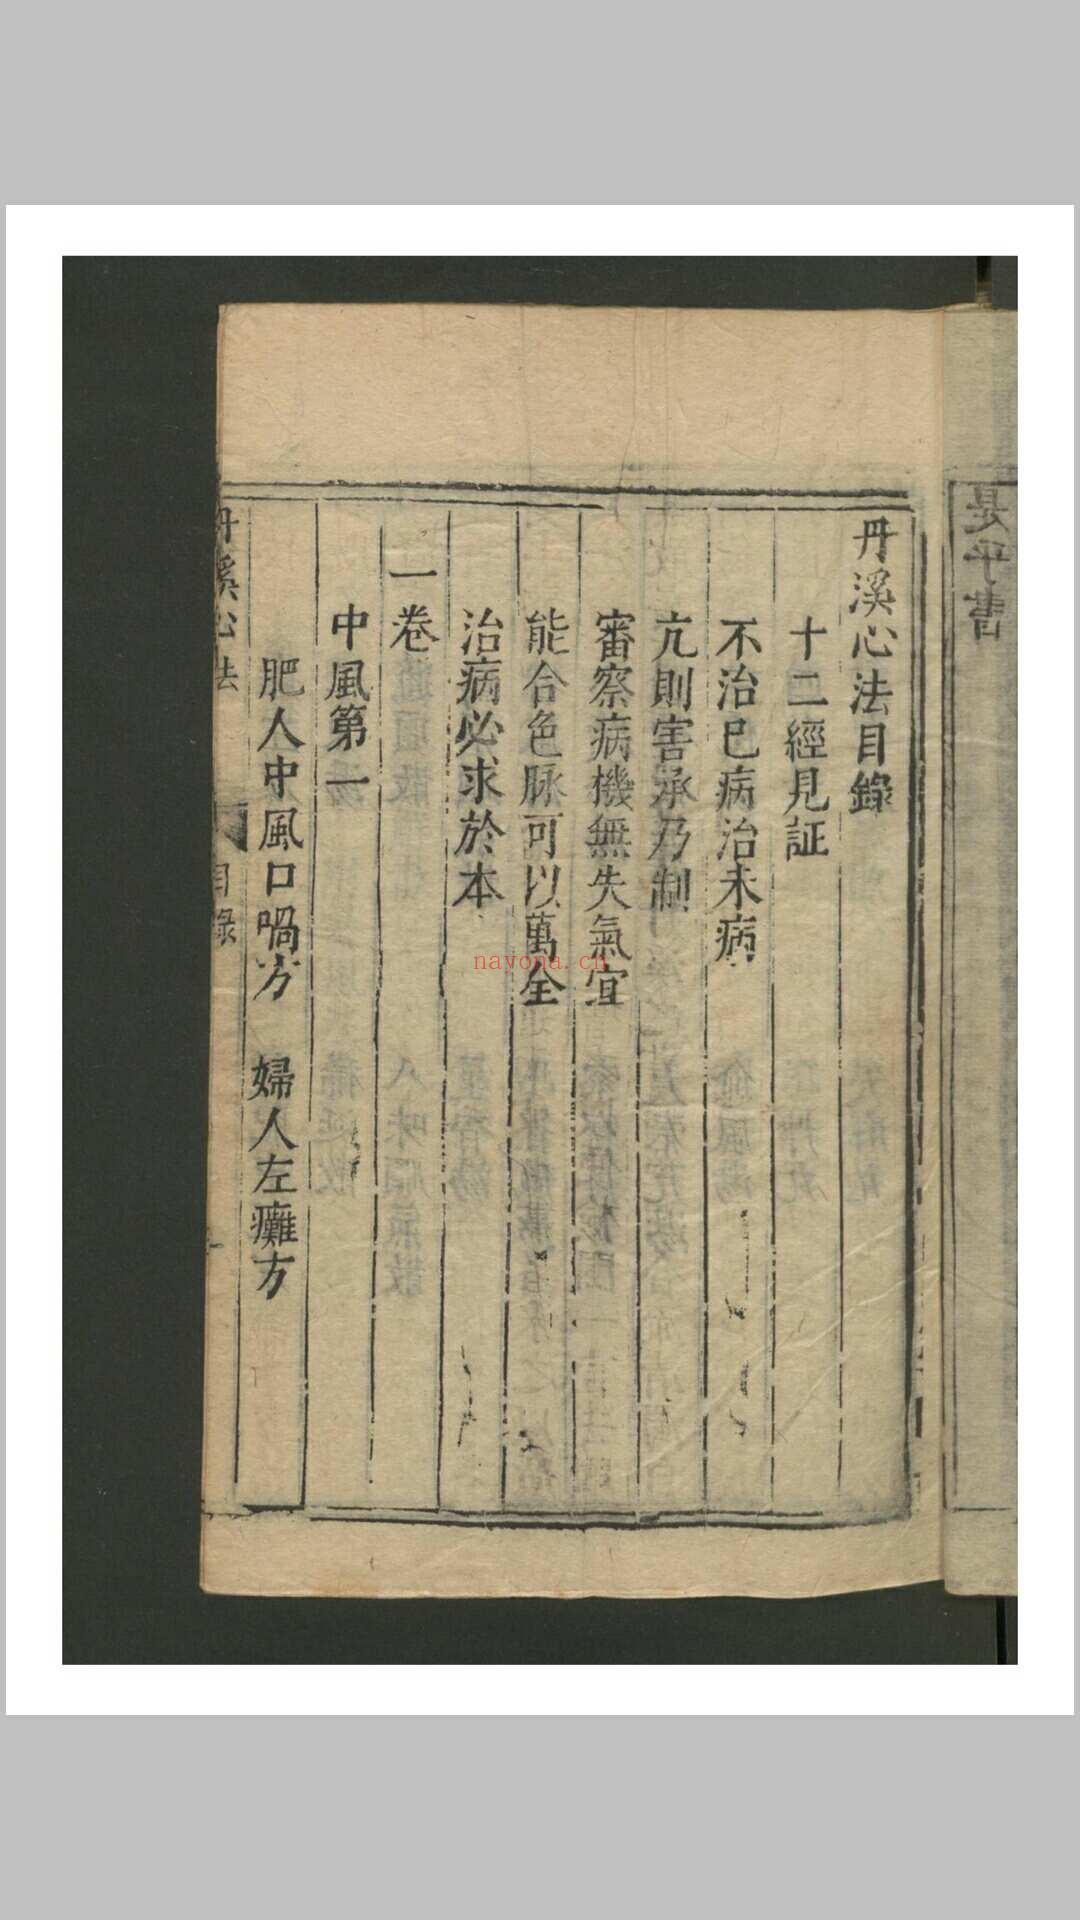 丹溪心法目錄
十二經見証
不治已病治未病
亢則害承乃制
審察病機無失氣宜
能合色脉可以萬全
治病必求於本
一卷
中風第一
肥人中風口喎方　婦人左癱方
丹溪心法　目錄
nayona.cn